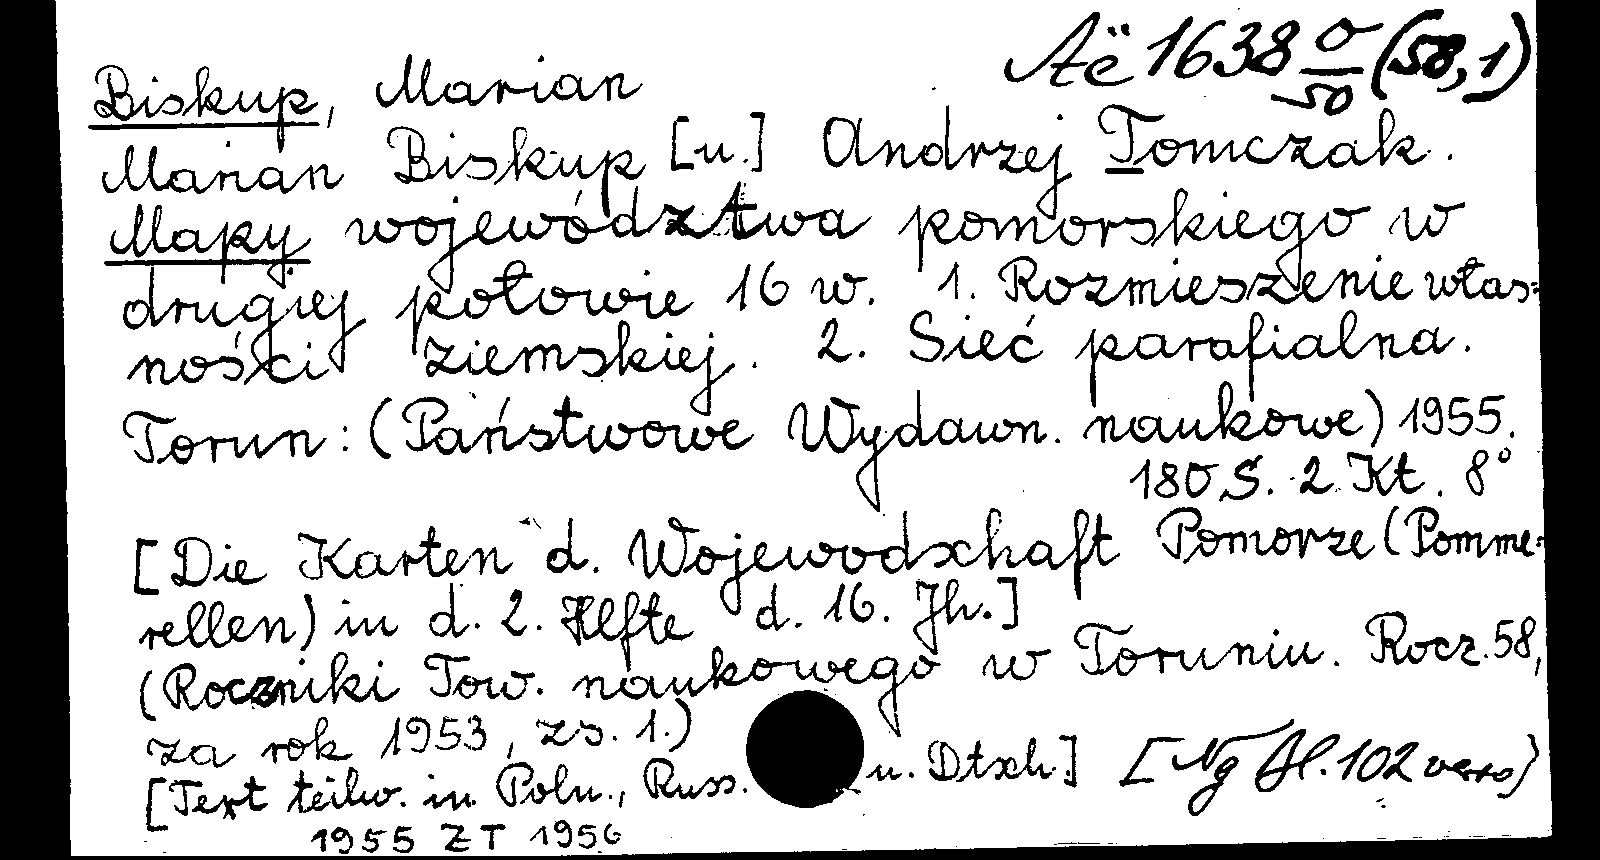 Aë 1638 o/50 (58,1)
Biskup, Marian
Marian Biskup [u.] Andrzej Tomczak.
Mapy województwa pomorskiego w
drugiej połowie 16 w. 1. Rozmieszenie włas=
ności ziemskiej. 2. Sieć parafialna.
Torun: (Państwowe Wydawn. naukowe) 1955.
180 S. 2 Kt. 8°
[Die Karten d. Wojewodschaft Pomorze (Pomme-
rellen) in d. 2. Hlfte d. 16. Jh.]
(Roczniki Tow. naukowego w Toruniu. Rocz. 58,
za rok 1953, zs. 1.)
[Text teilw. in Poln., Russ. u. Dtsch.] [Ng Bl. 102 verso]
1955 ZT 1956